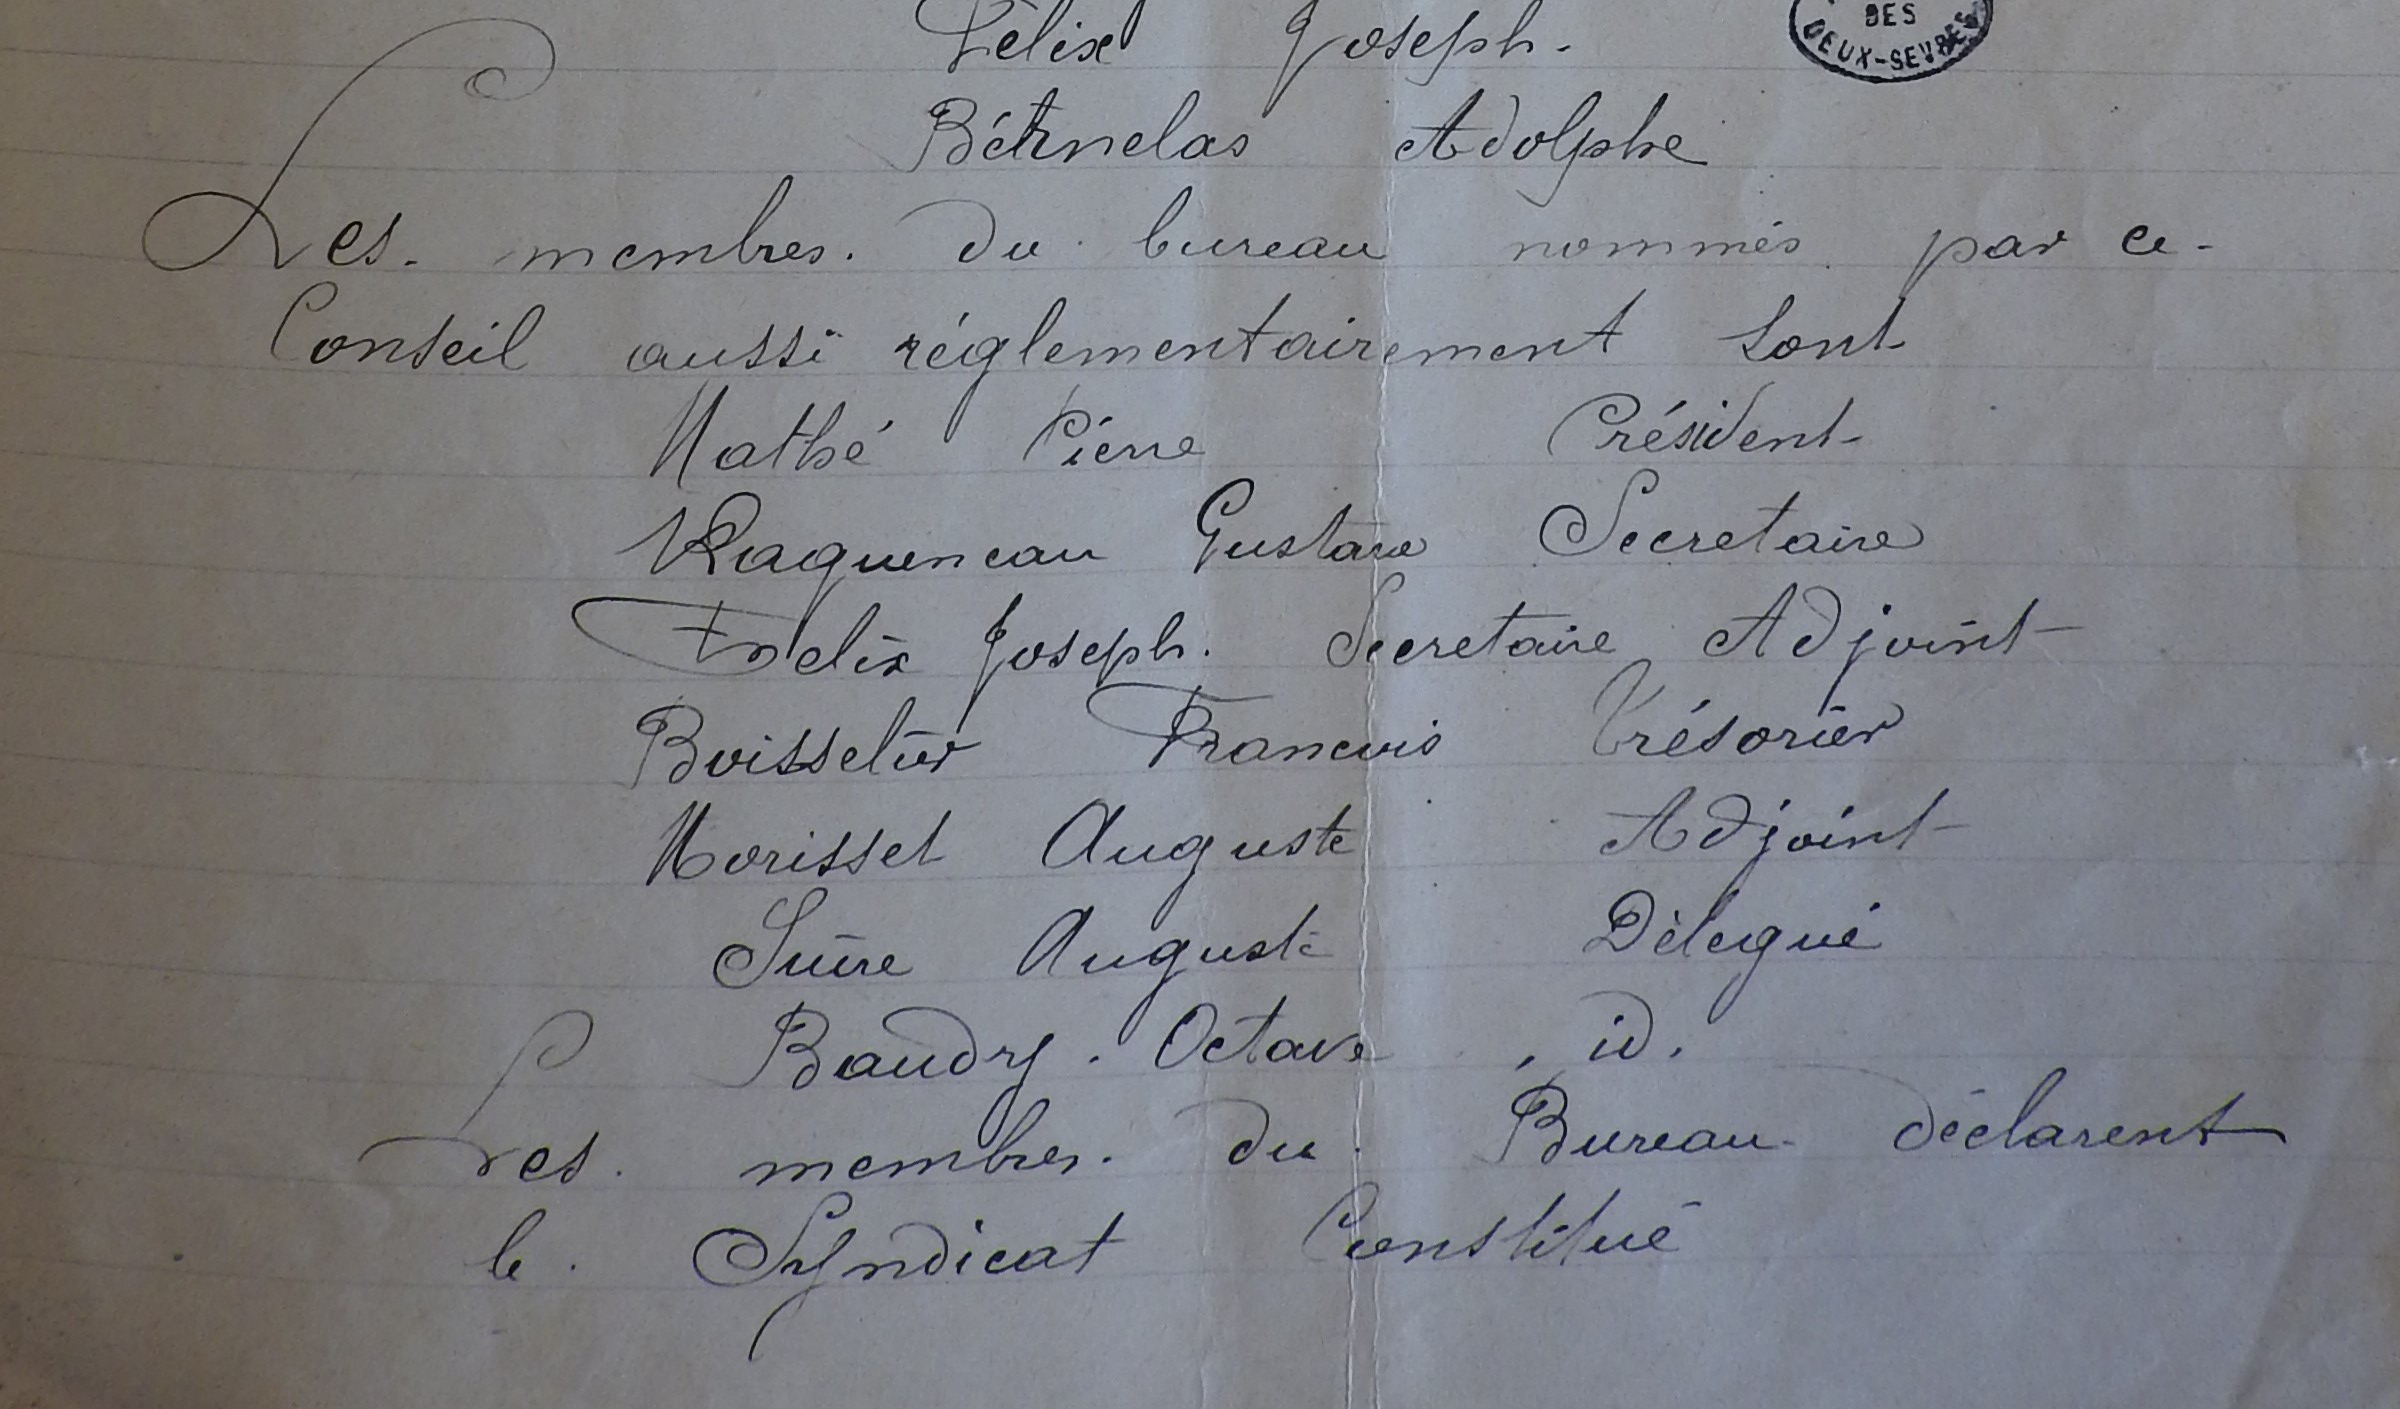 Félix Joseph.
DES
DEUX-SEVRES
Bétrnelas Adolphe
Les. membres. du bureau nommés par ce-
Conseil aussi réglementairement sont
Mathé Pierre Président
Raqueneau Gustave Secretaire
Félix Joseph. Secretaire Adjoint
Boisselier Francois Trésorier
Morisset Auguste Adjoint
Suire Auguste Délegué
Baudry. Octave . id.
Les. membres. du. Bureau déclarent
le. Syndicat Constitué